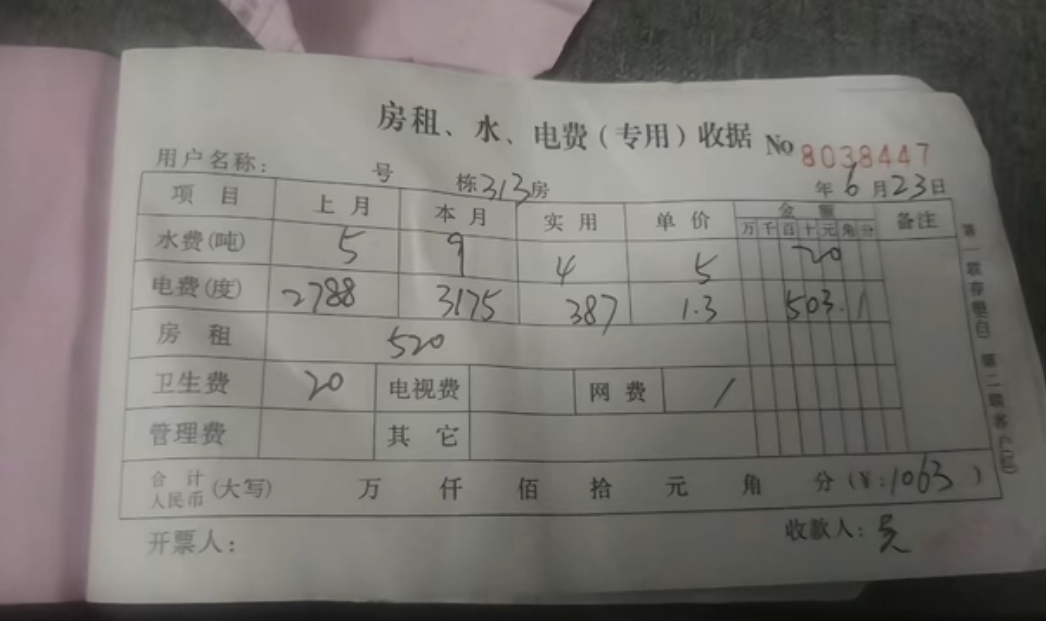 房租、水、电费(专用)收据 No 8038447
用户名称: 号 栋313房 年6月23日
项目 上月 本月 实用 单价 金额 备注
万千百十元角分
水费(吨) 5 9 4 5 20
电费(度) 2788 3175 387 1.3 503.1
房租 520
卫生费 20 电视费 网费 /
管理费 其它
合计人民币(大写) 万 仟 佰 拾 元 角 分(¥:1063)
开票人: 收款人:
第一联存根(白) 第二联客户(红)